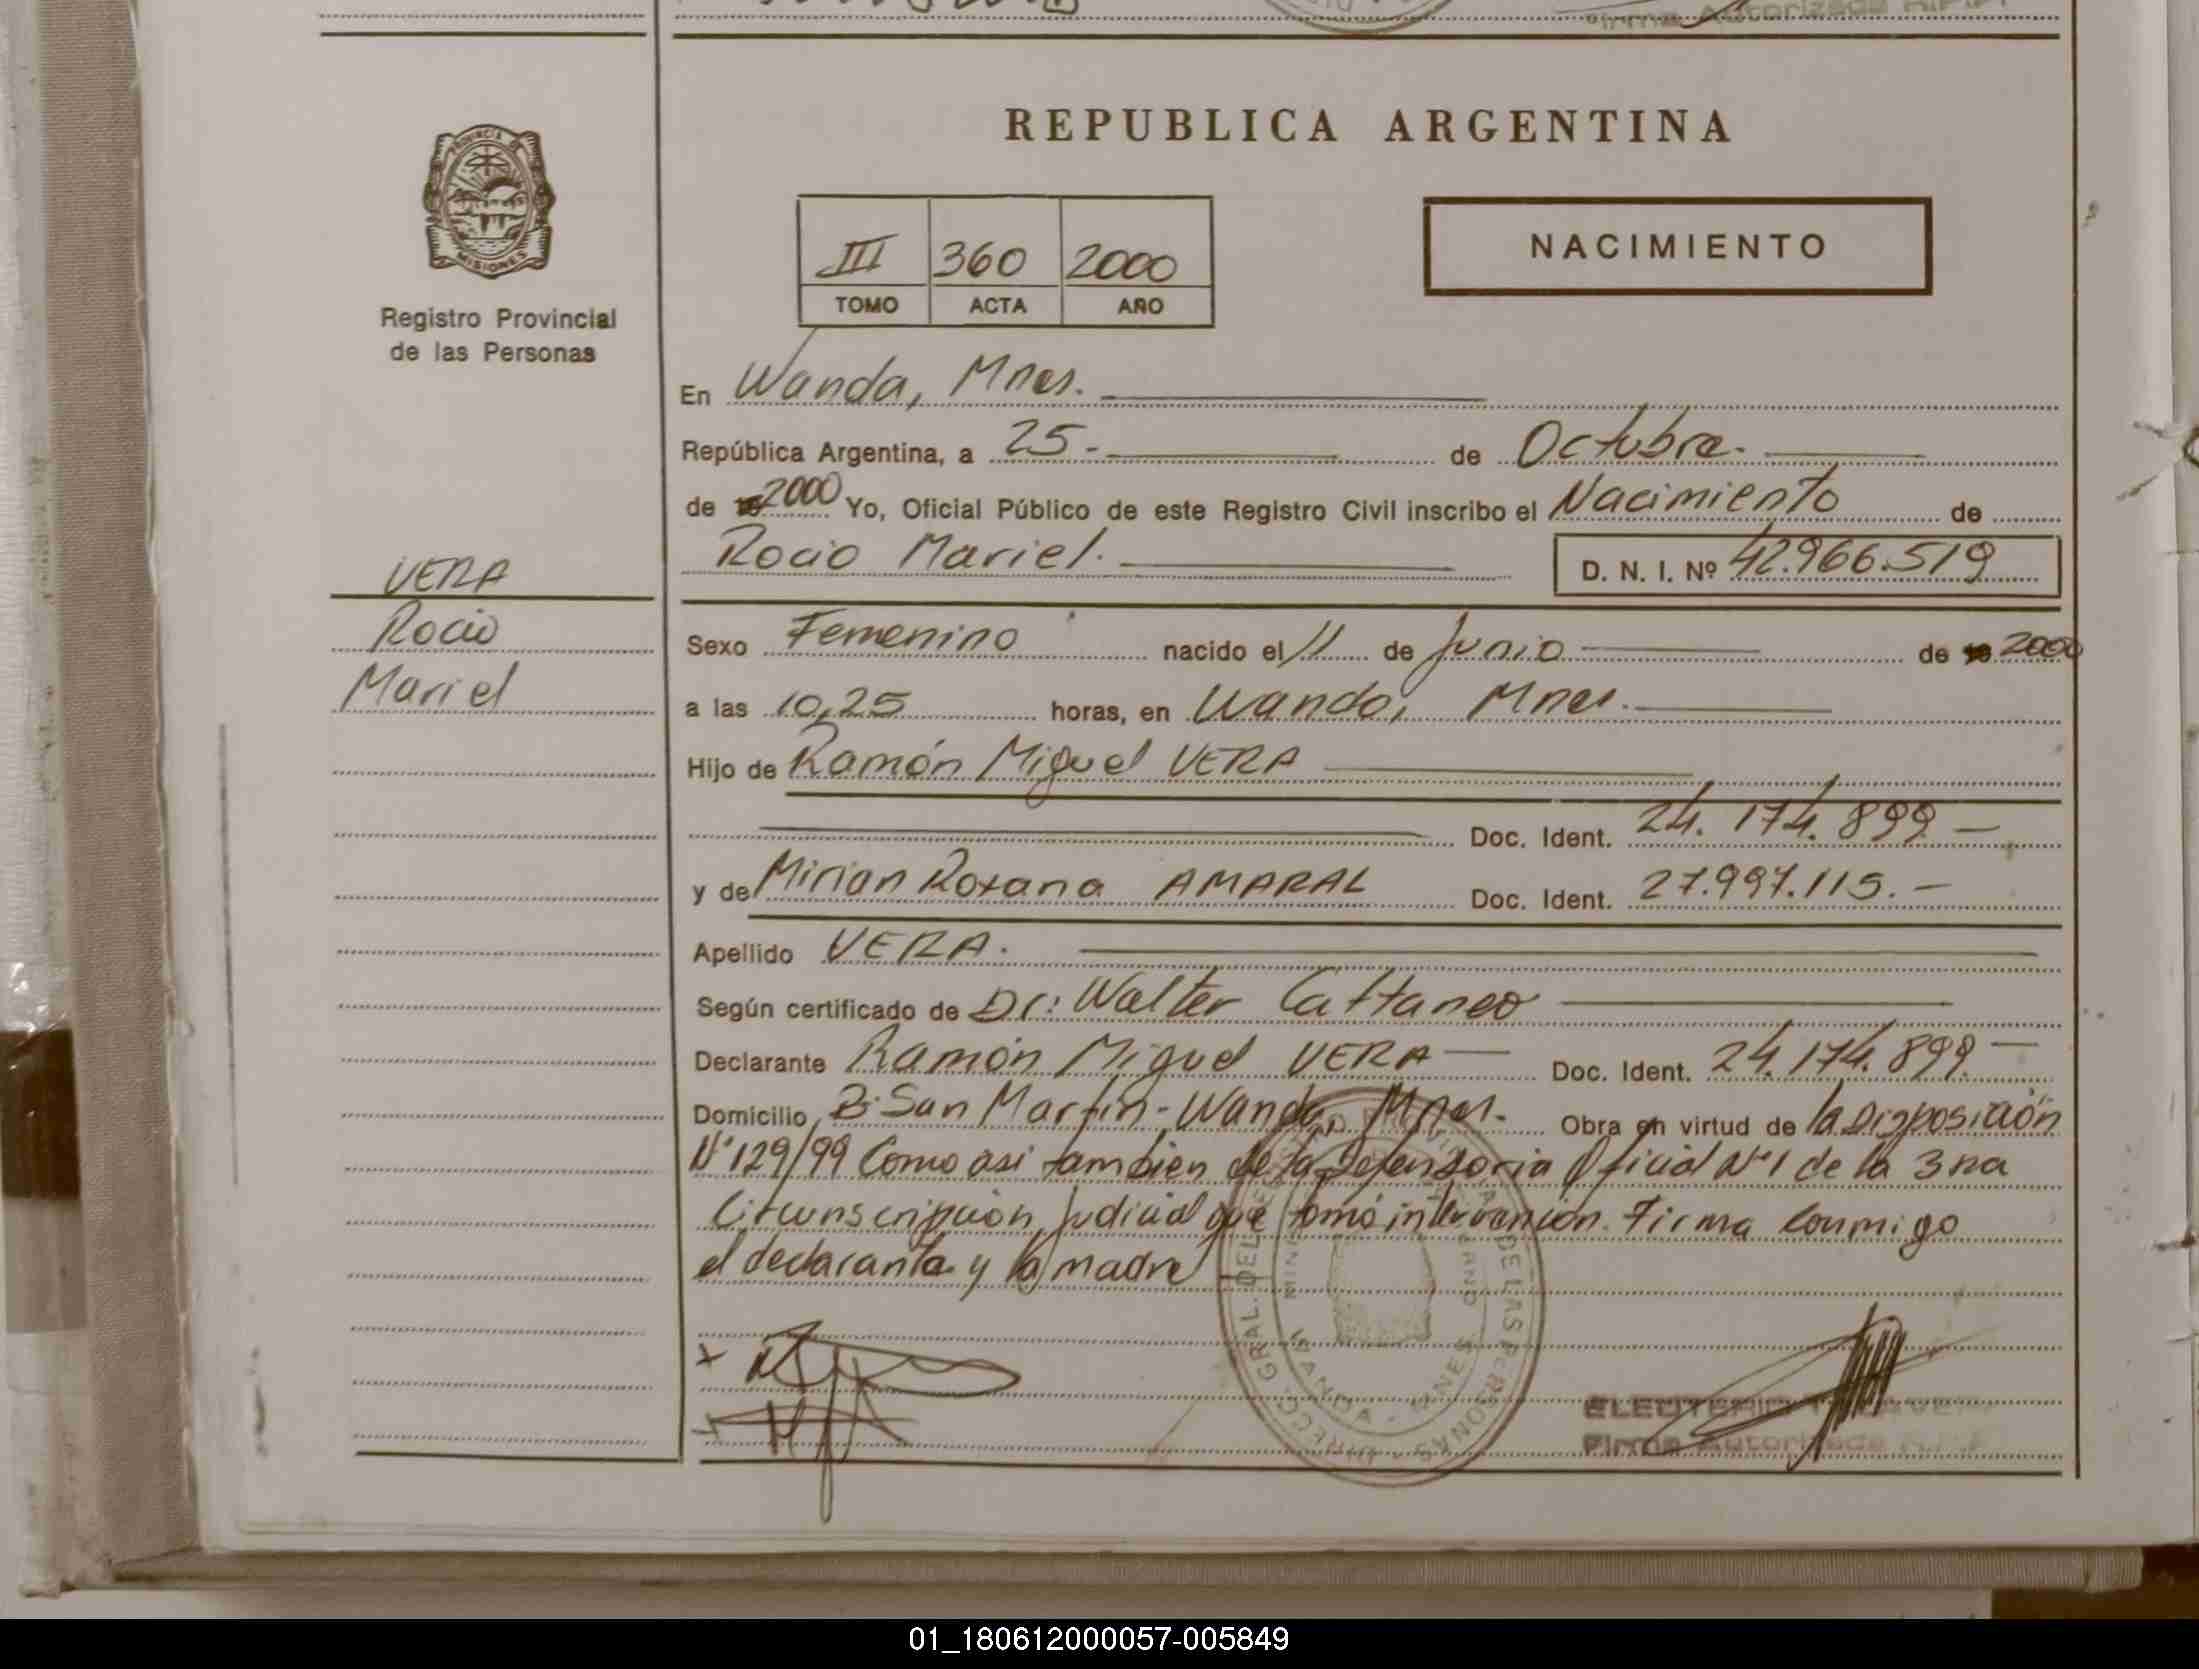 REPUBLICA ARGENTINA
PROVINCIA
MISIONES
Registro Provincial
de las Personas
III 360 2000
TOMO ACTA AÑO
NACIMIENTO
En Wanda, Mnes.
República Argentina, a 25 - de Octubre.
de 2000 Yo, Oficial Público de este Registro Civil inscribo el Nacimiento de
Rocio Mariel. D. N. I. Nº 42.966.519
VERA
Rocio
Mariel
Sexo Femenino nacido el 11 de Junio de 2000
a las 10,25 horas, en Wanda, Mnes.
Hijo de Ramón Miguel VERA
Doc. Ident. 24.174.899.-
y de Mirian Roxana AMARAL Doc. Ident. 27.997.115.-
Apellido VERA.
Según certificado de Dr: Walter Cattaneo
Declarante Ramón Miguel VERA Doc. Ident. 24.174.899.-
Domicilio B: San Martin - Wanda, Mnes. Obra en virtud de la Disposición
Nº 129/99 Como asi tambien de la Defensoria Oficial Nº 1 de la 3ra
Circunscripción Judicial que tomó intervencion. Firma Conmigo
el declarante y la madre
WANDA - MNES
Firma Autorizada
01_180612000057-005849